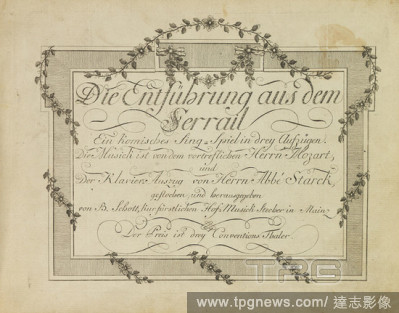 Die Entführung aus dem
Serrail
Ein komisches Sing-Spiel in drey Aufzügen.
Die Musick ist von dem vortreflichen Herrn Mozart,
und
Der Klavier Auszug von Herrn Abbé Starck,
gestochen und herausgegeben
von B. Schott, kurfürstlichen Hof Musick Stecher in Mainz
Der Preis ist drey Conventions Thaler
TPG
www.tpgnews.com/ 達志影像